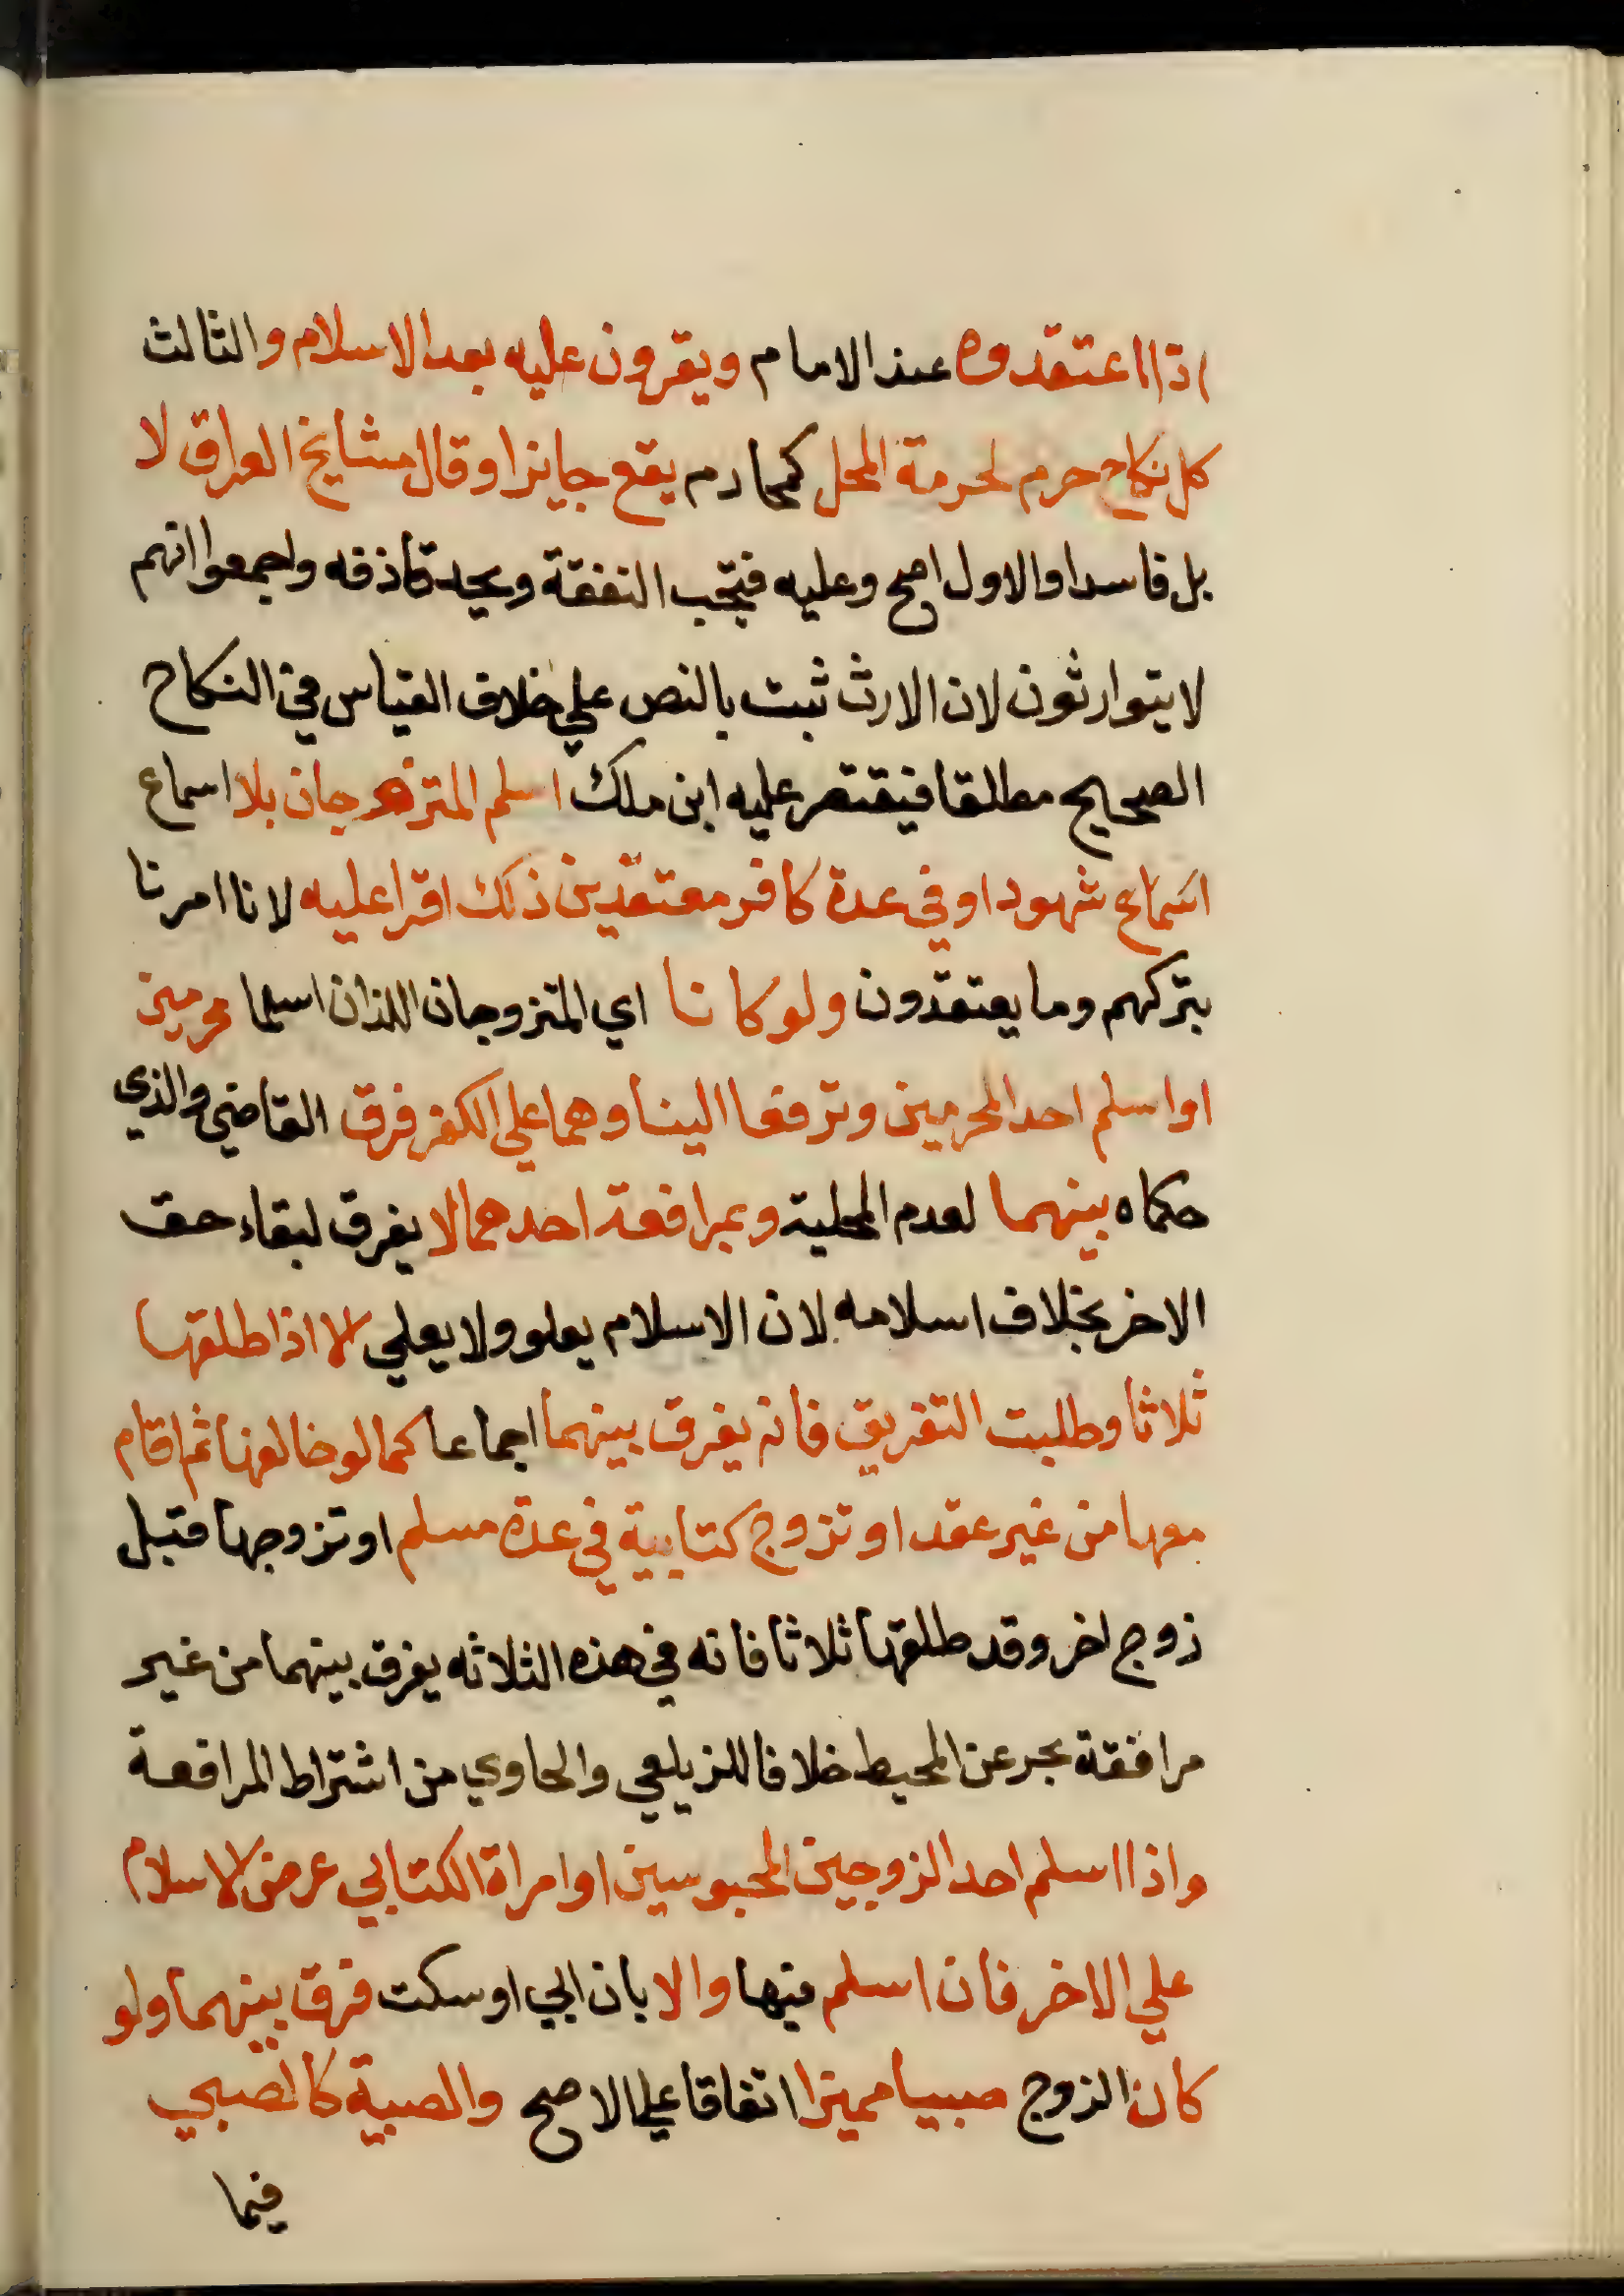 اذا اعتقدوه عند الامام ويقرون عليه بعد الاسلام والثالث
كل نكاح حرم لحرمة المحل كمحارم يقع جايزا وقال مشايخ العراق لا
بل فاسدا والاول اصح وعليه فتجب النفقة ويحد قاذفه واجمعوا انهم
لا يتوارثون لان الارث ثبت بالنص علي خلاف القياس في النكاح
الصحيح مطلقا فيقتصر عليه ابن ملك اسلم المتزوجان بلا اسماع
اسماع شهود او في عدة كافر معتقدين ذلك اقرا عليه لانا امرنا
بتركهم وما يعتقدون ولو كانا اي المتزوجان اللذان اسلما محرمين
او اسلم احد المحرمين وترفعا الينا وهما علي الكفر فرق القاضي والذي
حكماه بينهما لعدم المحلية وبمرافعة احدهما لا يفرق لبقاء حق
الاخر بخلاف اسلامه لان الاسلام يعلو ولا يعلي الا اذا طلقها
ثلاثا وطلبت التفريق فانه يفرق بينهما اجماعا كما لو خالعها ثم اقام
معها من غير عقد او تزوج كتابية في عدة مسلم او تزوجها قبل
زوج اخر وقد طلقها ثلاثا فانه في هذه الثلاثه يفرق بينهما من غير
مرافقة بحر عن المحيط خلافا للزيلعي والحاوي من اشتراط المرافعة
واذا اسلم احد الزوجين المجبوسين او امراة الكتابي عرض الاسلام
علي الاخر فان اسلم فيها والا بان ابي او سكت فرق بينهما ولو
كان الزوج صبيا مميزا اتفاقا علي الاصح والصبية كالصبي
فيما